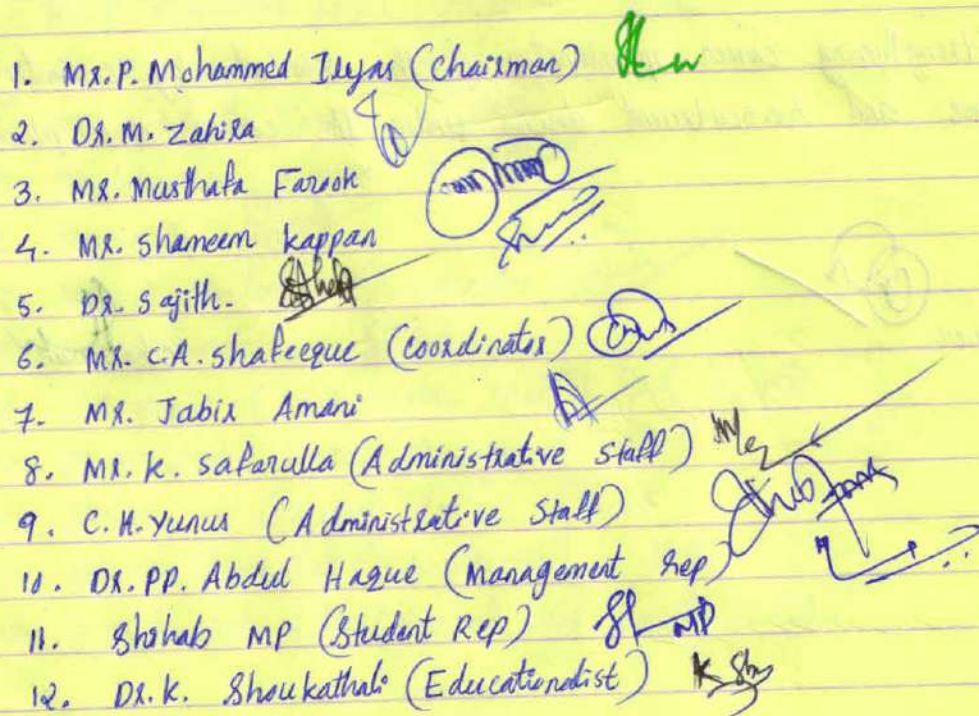 1. Mr. P. Mohammed Ilyas (Chairman)
2. Dr. M. Zahira
3. Mr. Musthafa Farook
4. Mr. Shameem Kappan
5. Dr. Sajith.
6. Mr. C.A. Shafeeque (Coordinator)
7. Mr. Jabir Amani
8. Mr. K. Safarulla (Administrative Staff)
9. C.H. Yunus (Administrative Staff)
10. Dr. PP. Abdul Haque (Management Rep)
11. Shihab MP (Student Rep) MP
12. Dr. K. Shoukathali (Educationalist)